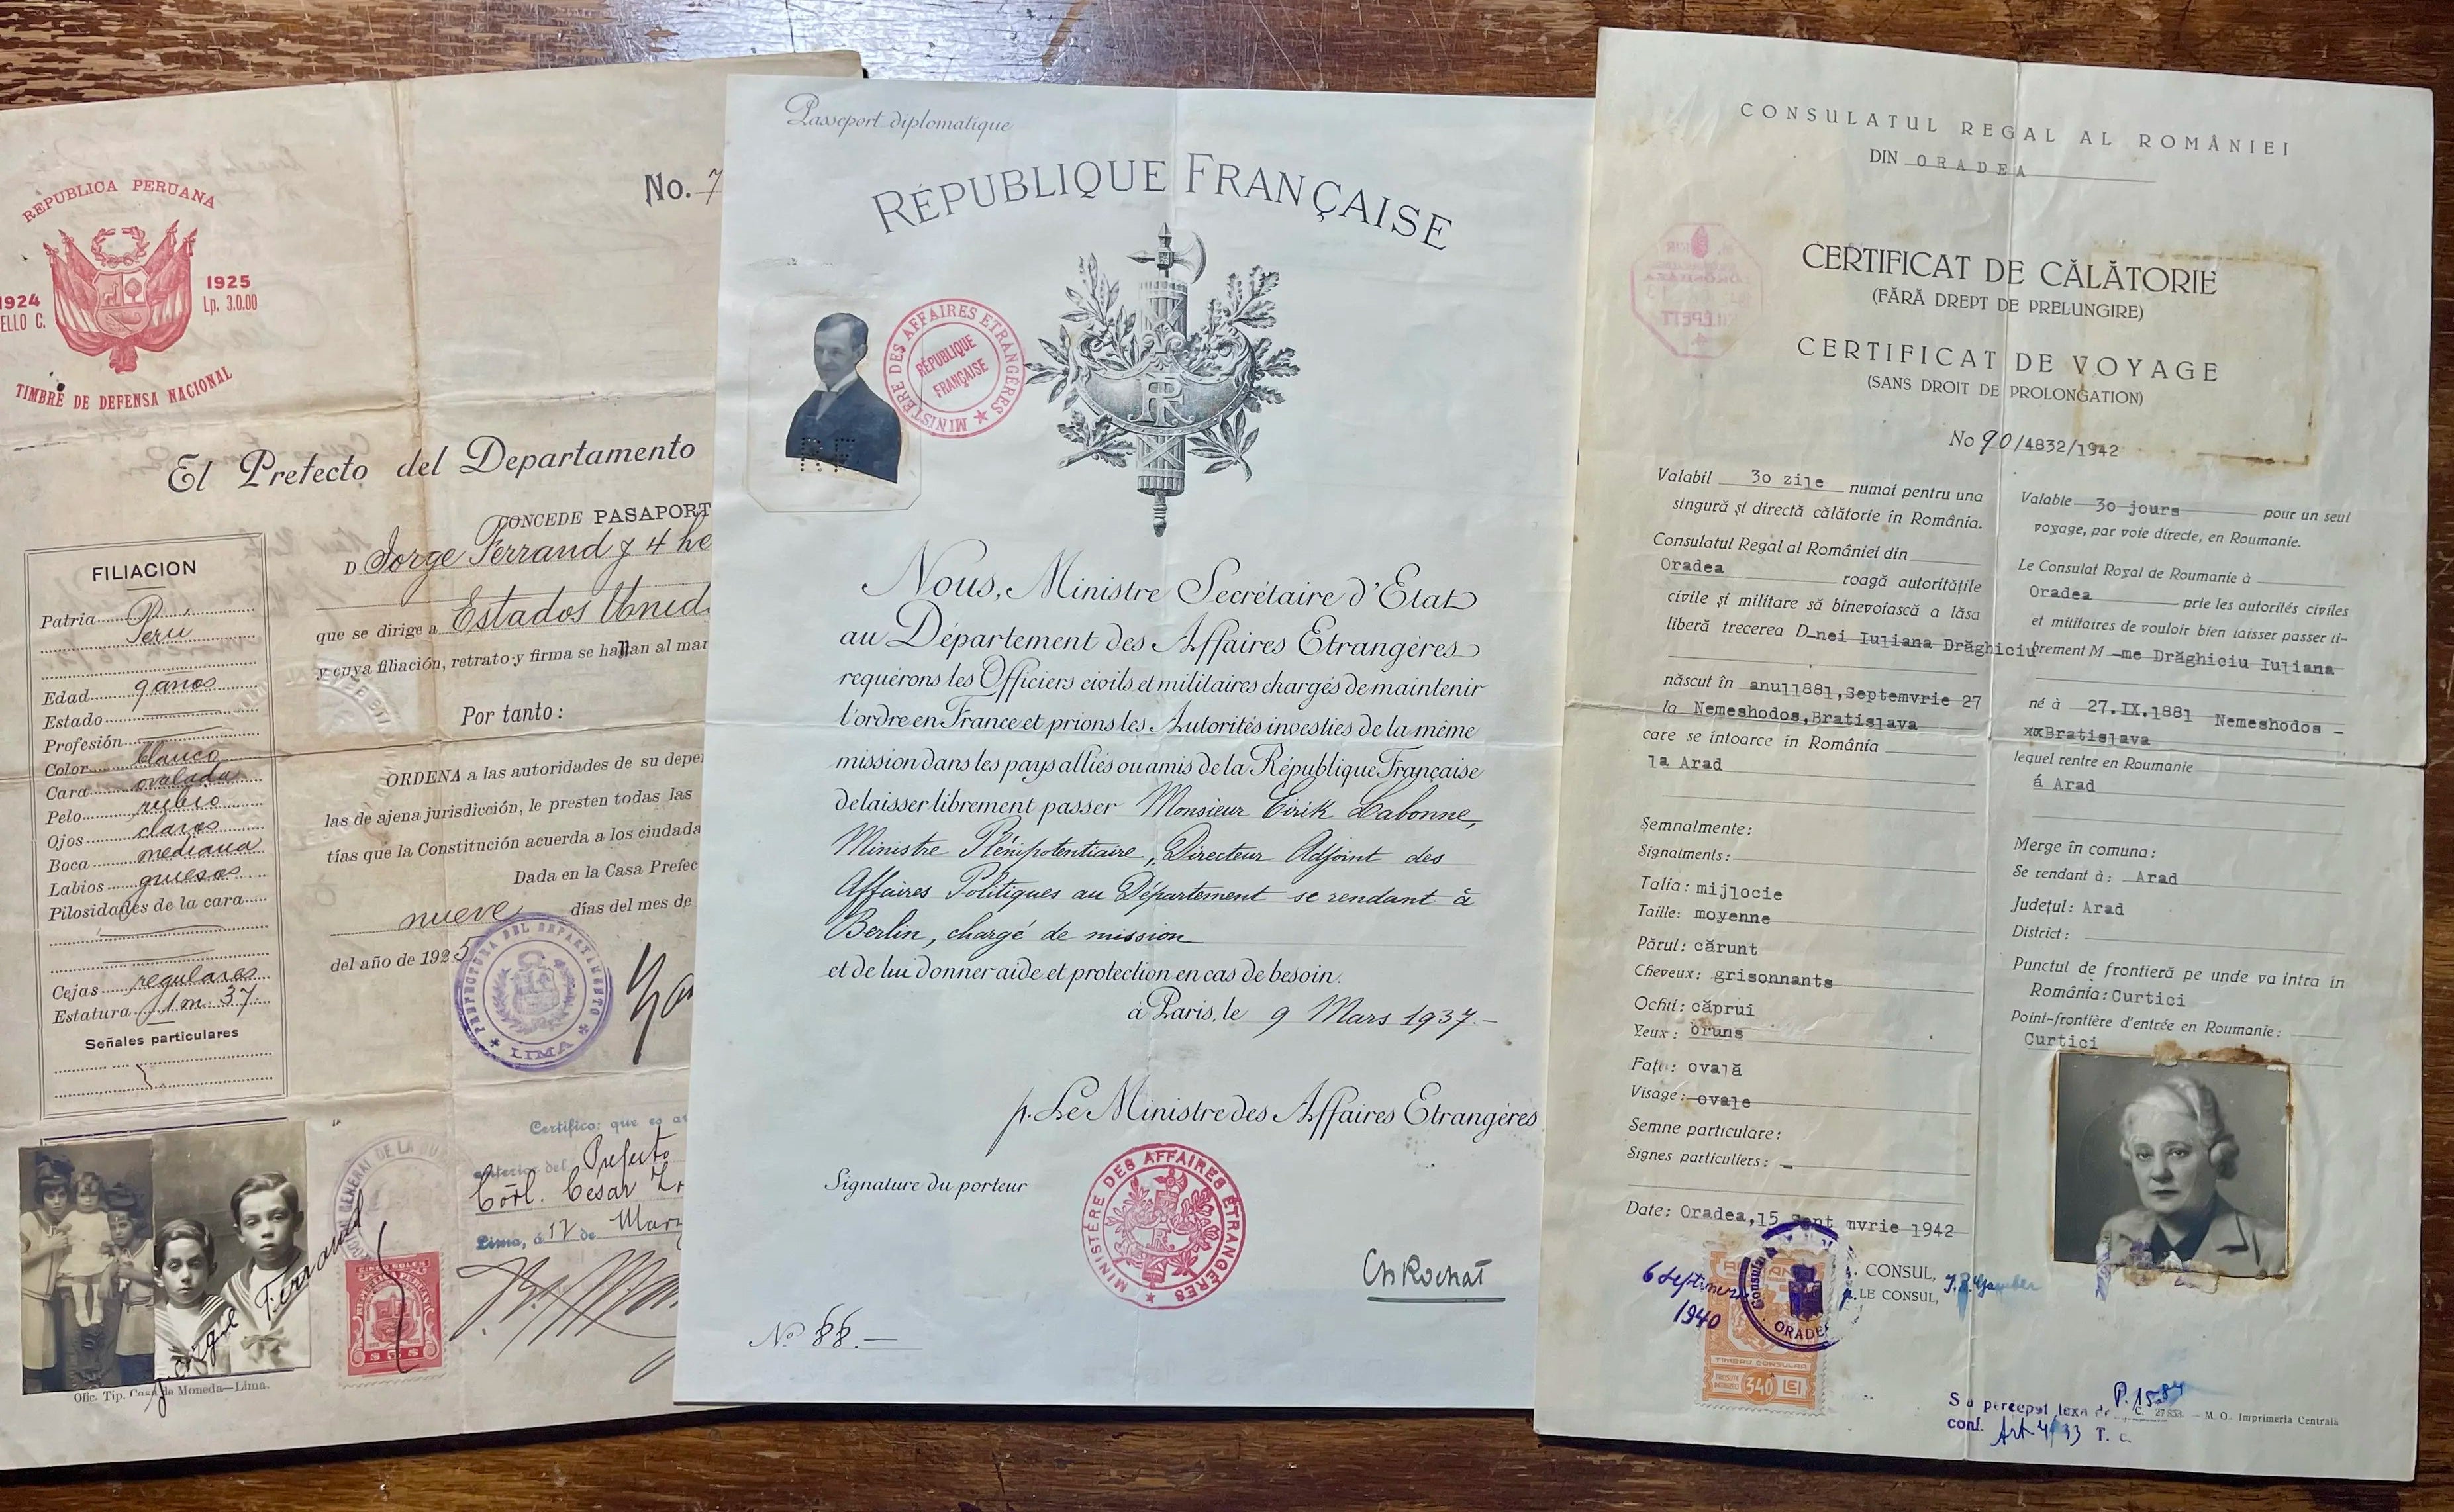 REPUBLICA PERUANA
1924
1925
ELLO C.
Lp. 3.0.00
TIMBRE DE DEFENSA NACIONAL
No. 7
El Prefecto del Departamento
CONCEDE PASAPORT
D Jorge Ferrand y 4 he
que se dirige a Estados Unid
y cuya filiación, retrato y firma se hallan al mar
Por tanto:
ORDENA a las autoridades de su depe
las de ajena jurisdicción, le presten todas las
tías que la Constitución acuerda a los ciudada
Dada en la Casa Prefec
nueve días del mes de
del año de 1925
FILIACION
Patria Perú
Edad 9 años
Estado
Profesión
Color blanco
Cara ovalada
Pelo rubio
Ojos claros
Boca mediana
Labios gruesos
Pilosidades de la cara
Cejas regulares
Estatura 1 m. 37
Señales particulares
PREFECTURA DEL DEPARTAMENTO
LIMA
Certifico: que es a
anterior del Prefecto
Corl. Cesar
Lima, á 12 de
Jorge Ferrand
CINCO SOLES
REPUBLICA PERUANA
Ofic. Tip. Casa de Moneda—Lima.
Passeport diplomatique
RÉPUBLIQUE FRANÇAISE
MINISTÈRE DES AFFAIRES ETRANGÈRES
RÉPUBLIQUE
FRANÇAISE
RF
R
Nous, Ministre Secrétaire d'Etat
au Département des Affaires Etrangères
requérons les Officiers civils et militaires chargés de maintenir
l'ordre en France et prions les Autorités investies de la même
mission dans les pays alliés ou amis de la République Française
de laisser librement passer Monsieur Eirik Labonne,
Ministre Plénipotentiaire, Directeur Adjoint des
Affaires Politiques au Département se rendant à
Berlin, chargé de mission
et de lui donner aide et protection en cas de besoin.
à Paris, le 9 Mars 1937.-
p. Le Ministre des Affaires Etrangères
Signature du porteur
MINISTÈRE DES AFFAIRES ETRANGÈRES
Ch Rochat
No 88.—
CONSULATUL REGAL AL ROMÂNIEI
DIN ORADEA
CERTIFICAT DE CĂLĂTORIE
(FĂRĂ DREPT DE PRELUNGIRE)
CERTIFICAT DE VOYAGE
(SANS DROIT DE PROLONGATION)
No 90/4832/1942
Valabil 30 zile numai pentru una
singură și directă călătorie în România.
Consulatul Regal al României din
Oradea roagă autoritățile
civile și militare să binevoiască a lăsa
liberă trecerea D-nei Iuliana Drăghiciu
născut în anul1881,Septemvrie 27
la Nemeshodos,Bratislava
care se întoarce în România
la Arad
Semnalmente:
Signalments:
Talia: mijlocie
Taille: moyenne
Părul: cărunt
Cheveux: grisonnants
Ochii: căprui
Yeux: bruns
Fața: ovală
Visage: ovale
Semne particulare:
Signes particuliers: -
Date: Oradea,15 Sept mvrie 1942
Valable 30 jours pour un seul
voyage, par voie directe, en Roumanie.
Le Consulat Royal de Roumanie à
Oradea prie les autorités civiles
et militaires de vouloir bien laisser passer li-
brement M -me Drăghiciu Iuliana
né à 27.IX.1881 Nemeshodos -
xxBratislava
lequel rentre en Roumanie
á Arad
Merge în comuna:
Se rendant à: Arad
Județul: Arad
District:
Punctul de frontieră pe unde va intra în
România: Curtici
Point-frontière d'entrée en Roumanie:
Curtici
CONSUL,
p. LE CONSUL,
6 Septemvrie
1940
ORADEA
TIMBRU CONSULAR
340 LEI
S'a perceput taxa de P. 1584
conf. Art 4/33 T. C.
C. 27833. — M. O. Imprimeria Centrală